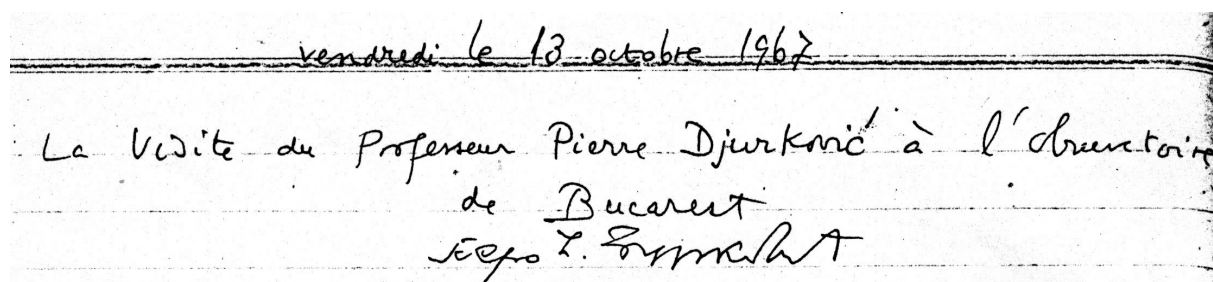 vendredi le 13 octobre 1967
La Visite du Professeur Pierre Djurković à l'Observatoire
de Bucarest